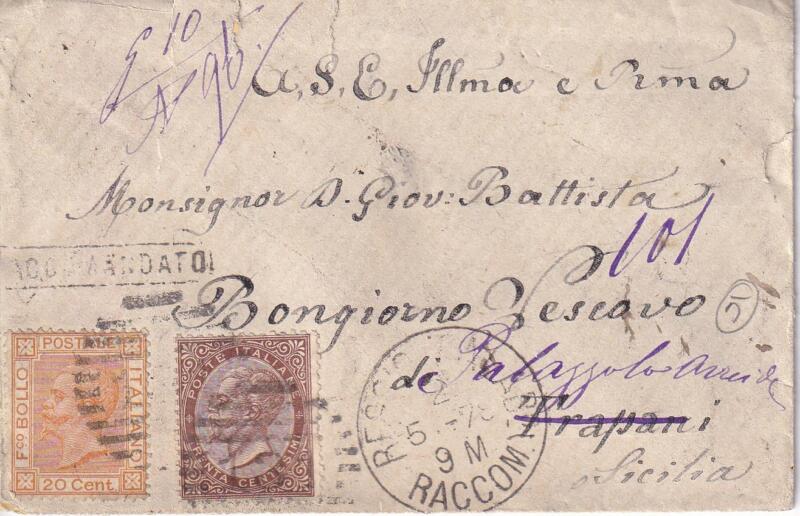 10
N 90
A, S, E, Illma e Rma
Monsignor D. Giov: Battista
101
RACCOMANDATO
Bongiorno Vescovo
5
di Palazzolo Acreide
Trapani
Sicilia
POSTALE
ITALIANO
Fco BOLLO
20 Cent.
POSTE ITALIANE
TRENTA CENTESIMI
REGGIO
5
9 M
RACCOM.